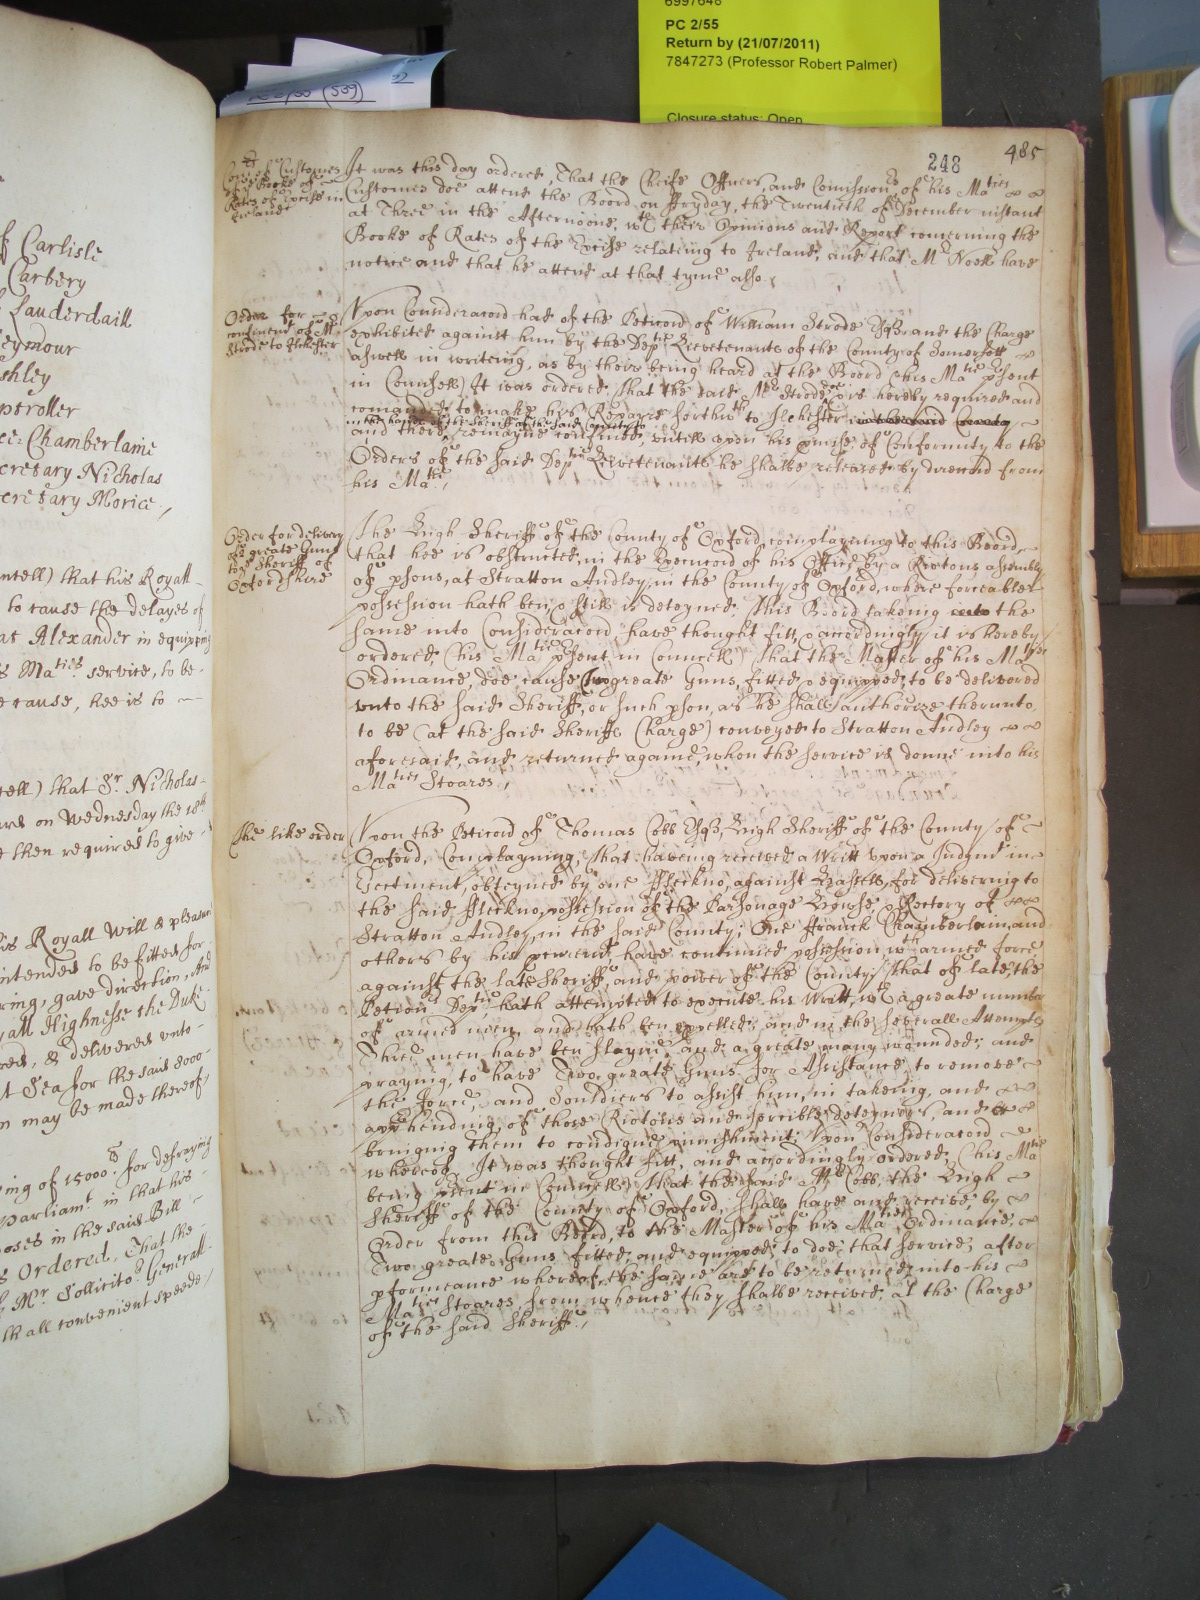 6997646
PC 2/55
Return by (21/07/2011)
7847273 (Professor Robert Palmer)
Closure status: Open
(539)
f Carlisle
Carbery
Lauderdaill
eymour
shley
ptroller
ce: Chamberlaine
cretary Nicholas
cretary Morice,
ncell) that his Royall
to cause the delayes of
at Alexander in equipping
s Maties service, to be
e cause, hee is to
cell) that Sr. Nicholas
ard on Wednesday the 18th
e then required to give
is Royall Will & pleasure
intended to be fitted for
ring, gave direction, And
yall Highnesse the Duke
red, & delivered unto
t Sea for the said 8000
n may be made thereof,
ing of 15000li for defraying
Parliamt. in that his
poses in the said Bill
s Ordered, That the
Mr. Sollicitor Generall
th all convenient speede,
248 485
Customes
Booke of
Rates of Excise in
Ireland
It was this day ordered, That the Cheife Officers, and Comissionrs of his Maties
Customes doe attend the Board on ffryday, the Twentieth of December instant
at Three in the Afternoone, wth their Opinions and Report concerning the
Booke of Rates of the Excise relating to Ireland, and that Mr Noell have
notice and that he attend at that tyme also,
Order for
confinemt of Mr
Strode to Ilchester
Upon Consideracon had of the Peticon of William Strode Esqr. and the Charge
exhibited against him by the Depty Lievetenants of the County of Somersett
aswell in writeing, as by their being heard at the Board (his Matie psent
in Councell) It was ordered, that the said Mr Strode doe is hereby required and
comanded to make his Repaire forthwth to Ilchester in the said County
in the house of the Sheriff of the said County
and there remayne confined, untill upon his pmise of Conformity to the
Orders of the said Depty Lievetenants he shalbe released by direccon from
his Matie,
Order for delivery
of 2 greate Gunns
to ye Sheriff of
Oxfordshire
The High Sheriffe of the County of Oxford, complayning to this Board,
that hee is obstructed, in the Execucon of his Office by a Riotous assembly
of psons, at Stratton Audley, in the County of Oxford, where forceable
possession hath ben, & still is deteyned, This Board takeing into the
same into Consideracon, have thought fitt, & accordingly it is hereby
ordered, (his Matie psent in Councell) That the Master of his Maties
Ordinance, doe cause two greate Guns, fitted, & equipped, to be delivered
unto the said Sheriff, or such pson, as he shall authorize thereunto,
to be (at the said Sheriffs Charge) conveyed to Stratton Audley
aforesaid, and returned againe, when the service is donne into his
Maties Stoares,
The like order
Upon the Peticon of Thomas Cobb Esqr. High Sheriff of the County of
Oxford, Complayning, That haveing received a Writt upon a Judgmt in
Ejectment, obteyned by one Fleckno, against Hassell, for delivering to
the said Fleckno, possession of the Parsonage Howse, & Rectory of
Stratton Audley, in the said County; One ffranck Chamberlain, and
others by his procuremt have continued possession, wth armed force
against the late Sheriff, and power of the County, That of late, the
Petionr Depty hath attempted to execute his Writt, wth a greate number
of armed men, and hath ben expelled, and in the severall Attempts
Three men have ben slayne, and a greate many wounded; and
praying, to have Two greate Guns for Assistance, to remove
the force, and Souldiers to assist him, in takeing, and
apprehending, of those Riotous and forcible deteyners, and
bringing them to condigne punishment; Upon Consideracon
whereof, It was thought fitt, and accordingly ordered, (his Matie
being psent in Councell) That the said Mr Cobb, the High
Sheriff of the County of Oxford, shall have and receive, by
order from this Board, to the Master of his Maties Ordinance,
Two greate Guns fitted, and equipped, to doe that service, after
pformeance whereof, the same are to be returned into his
Maties Stoares, from whence they shalbe received, at the Charge
of the said Sheriff,